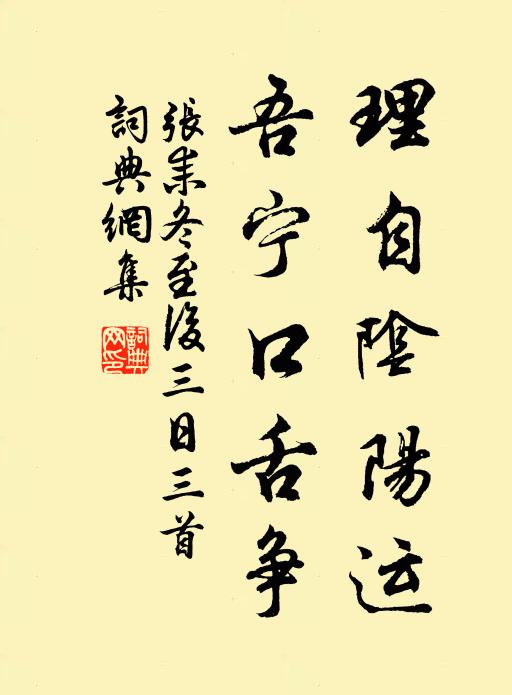 理自陰陽运
吾宁口舌争
張耒冬至後三日三首
詞典網集
詞典網印